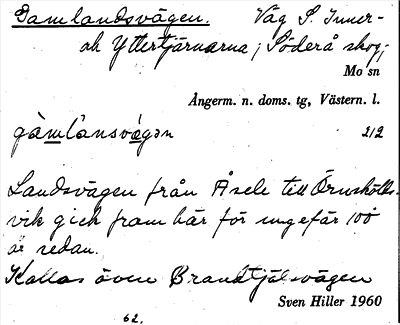 Gamlandsvägen. Väg S. Inner-
och Yttertjärnarna; Söderå skog;
Mo sn
Ångerm. n. doms. tg, Västern. l.
gàmlånsvégən 212
Landsvägen från Åsele till Örnskölds-
vik gick fram här för ungefär 100
år sedan.
Kallas även Brandtjälsvägen
Sven Hiller 1960
62.